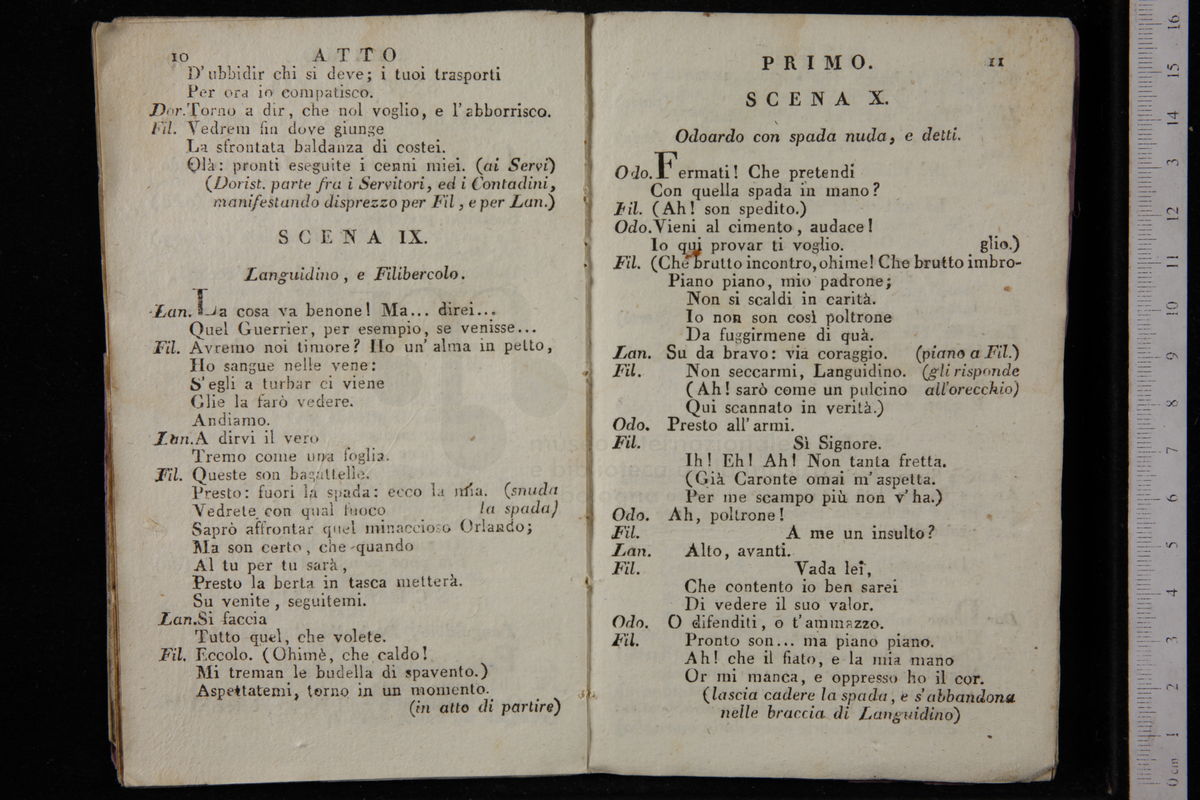 10 ATTO
D'ubbidir chi si deve; i tuoi trasporti
Per ora io compatisco.
Dor. Torno a dir, che nol voglio, e l'abborrisco.
Fil. Vedrem fin dove giunge
La sfrontata baldanza di costei.
Olà: pronti eseguite i cenni miei. (ai Servi)
(Dorist. parte fra i Servitori, ed i Contadini,
manifestando disprezzo per Fil, e per Lan.)
SCENA IX.
Languidino, e Filibercolo.
Lan. La cosa va benone! Ma... direi...
Quel Guerrier, per esempio, se venisse...
Fil. Avremo noi timore? Ho un' alma in petto,
Ho sangue nelle vene:
S'egli a turbar ci viene
Glie la farò vedere.
Andiamo.
Lan. A dirvi il vero
Tremo come una foglia.
Fil. Queste son bagattelle.
Presto: fuori la spada: ecco la mia. (snuda
Vedrete con qual fuoco la spada)
Saprò affrontar quel minaccioso Orlando;
Ma son certo, che quando
Al tu per tu sarà,
Presto la berta in tasca metterà.
Su venite, seguitemi.
Lan. Si faccia
Tutto quel, che volete.
Fil. Eccolo. (Ohimè, che caldo!
Mi treman le budella di spavento.)
Aspettatemi, torno in un momento.
(in atto di partire)
PRIMO. 11
SCENA X.
Odoardo con spada nuda, e detti.
Odo. Fermati! Che pretendi
Con quella spada in mano?
Fil. (Ah! son spedito.)
Odo. Vieni al cimento, audace!
Io qui provar ti voglio. glio.)
Fil. (Che brutto incontro, ohime! Che brutto imbro-
Piano piano, mio padrone;
Non si scaldi in carità.
Io non son così poltrone
Da fuggirmene di quà.
Lan. Su da bravo: via coraggio. (piano a Fil.)
Fil. Non seccarmi, Languidino. (gli risponde
(Ah! sarò come un pulcino all'orecchio)
Qui scannato in verità.)
Odo. Presto all'armi.
Fil. Sì Signore.
Ih! Eh! Ah! Non tanta fretta.
(Già Caronte omai m'aspetta.
Per me scampo più non v'ha.)
Odo. Ah, poltrone!
Fil. A me un insulto?
Lan. Alto, avanti.
Fil. Vada lei,
Che contento io ben sarei
Di vedere il suo valor.
Odo. O difenditi, o t'ammazzo.
Fil. Pronto son... ma piano piano.
Ah! che il fiato, e la mia mano
Or mi manca, e oppresso ho il cor.
(lascia cadere la spada, e s'abbandona
nelle braccia di Languidino)
0 cm 1 2 3 4 5 6 7 8 9 10 11 12 13 14 15 16